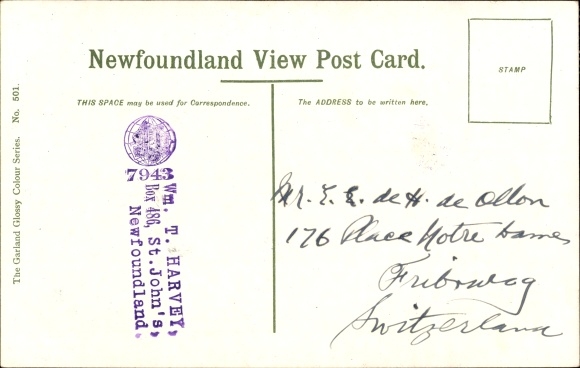 Newfoundland View Post Card.
STAMP
THIS SPACE may be used for Correspondence.
The ADDRESS to be written here.
The Garland Glossy Colour Series. No. 501.
7943
Wm. T. HARVEY,
Box 486, St. John's,
Newfoundland.
Mr. E. E. de H. de Ollon
176 Place Notre Dames
Fribourg
Switzerland